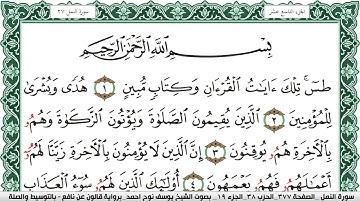 الجزء التاسع عشر
سورة النمل ٢٧
بِسْمِ اللَّهِ الرَّحْمَٰنِ الرَّحِيمِ
طسٓ تِلْكَ ءَايَٰتُ الْقُرْءَانِ وَكِتَابٍ مُّبِينٍ ١ هُدىً وَبُشْرَىٰ
لِلْمُؤْمِنِينَ ٢ الَّذِينَ يُقِيمُونَ الصَّلَوٰةَ وَيُؤْتُونَ الزَّكَوٰةَ وَهُمُۥ
بِالْأَخِرَةِ هُمُۥ يُوقِنُونَ ٣ إِنَّ الَّذِينَ لَا يُؤْمِنُونَ بِالْأَخِرَةِ زَيَّنَّا لَهُمُۥ
أَعْمَٰلَهُمُۥ فَهُمُۥ يَعْمَهُونَ ٤ أُوْلَٰٓئِكَ الَّذِينَ لَهُمُۥ سُوٓءُ الْعَذَابِ
سورة النمل . الصفحة ٣٧٧ الحزب ٣٨ الجزء ١٩ بصوت الشيخ يوسف نوح احمد .برواية قالون عن نافع - بالتوسط والصلة